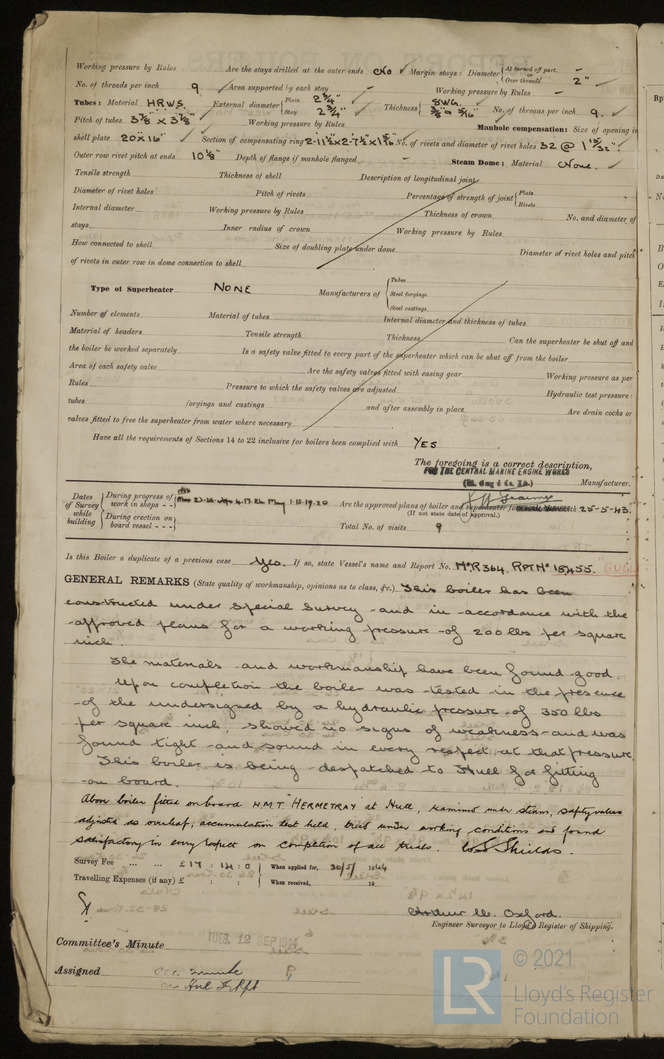 Working pressure by Rules Are the stays drilled at the outer ends No Margin stays: Diameter { At turned off part, or Over threads 2"
No. of threads per inch 9 Area supported by each stay Working pressure by Rules
Tubes: Material H.R.W.S. External diameter { Plain 2 3/4" Stay 2 3/4" Thickness { 8WG. No. of threads per inch 9.
Pitch of tubes 3 7/8" x 3 7/8" Working pressure by Rules Manhole compensation: Size of opening in
shell plate 20" x 16" Section of compensating ring No. of rivets and diameter of rivet holes 32 @ 1 15/32".
Outer row rivet pitch at ends 10 1/8" Depth of flange if manhole flanged Steam Dome: Material None.
Tensile strength Thickness of shell Description of longitudinal joint
Diameter of rivet holes Pitch of rivets Percentage of strength of joint { Plate Rivets
Internal diameter Working pressure by Rules Thickness of crown No. and diameter of
stays Inner radius of crown Working pressure by Rules
How connected to shell Size of doubling plate under dome Diameter of rivet holes and pitch
of rivets in outer row in dome connection to shell
Type of Superheater NONE Manufacturers of { Tubes Steel forgings Steel castings
Number of elements Material of tubes Internal diameter and thickness of tubes
Material of headers Tensile strength Thickness Can the superheater be shut off and
the boiler be worked separately Is a safety valve fitted to every part of the superheater which can be shut off from the boiler
Area of each safety valve Are the safety valves fitted with easing gear Working pressure as per
Rules Pressure to which the safety valves are adjusted Hydraulic test pressure:
tubes forgings and castings and after assembly in place Are drain cocks or
valves fitted to free the superheater from water where necessary
Have all the requirements of Sections 14 to 22 inclusive for boilers been complied with YES
The foregoing is a correct description,
FOR THE CENTRAL MARINE ENGINE WORKS
(Wm. Gray & Co. Ld.) Manufacturer.
Dates of Survey while building { During progress of work in shops - - 4.17.26 May 1.12.19.20 Are the approved plans of boiler and superheater forwarded herewith 25-5-43.
(If not state date of approval.)
During erection on board vessel - - - Total No. of visits 9
Is this Boiler a duplicate of a previous case Yes. If so, state Vessel's name and Report No. RPT No 18455.
GENERAL REMARKS (State quality of workmanship, opinions as to class, &c.) This boiler has been
constructed under special survey and in accordance with the
approved plans for a working pressure of 200 lbs per square
inch.
The materials and workmanship have been found good.
Upon completion the boiler was tested in the presence
of the undersigned by a hydraulic pressure of 350 lbs
per square inch, showed no signs of weakness and was
found tight and sound in every respect at that pressure.
This boiler is being despatched to Hull for fitting
on board.
Above boiler fitted on board H.M.T. HERMETRAY at Hull, examined under steam, safety valves
adjusted as overleaf, accumulation test held, tried under working conditions and found
satisfactory in every respect on completion of all trials. W.S. Shields.
Survey Fee ... ... £ 17 : 14 : 0 When applied for, 30/5/1944
Travelling Expenses (if any) £ : : When received, 19
Arthur W. Oxford.
Engineer Surveyor to Lloyd's Register of Shipping.
Committee's Minute TUES. 12 SEP 1944
Assigned See minute
on Hul F.E. Rpt
LR © 2021
Lloyd's Register
Foundation